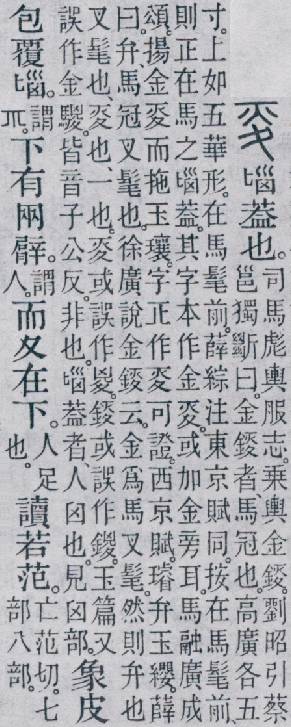 𡕢匘蓋也。司馬彪輿服志。乘輿金鋄。劉昭引蔡
邕獨斷曰。金鋄者、馬冠也。高廣各五
寸。上如五華形。在馬髦前。薛綜注東京賦同。按在馬髦前、
則正在馬之匘蓋。其字本作金𡕢。或加金旁耳。馬融廣成
頌。揚金𡕢而拖玉瓖。字正作𡕢可證。西京賦。璿弁玉纓。薛
曰。弁、馬冠叉髦也。徐廣說金鋄云。金爲馬叉髦。然則弁也
叉髦也、𡕢也、一也。𡕢或誤作㚇。鋄或誤作鍐。玉篇又
誤作金騣。皆音子公反。非也。匘蓋者、人囟也。見囟部。象皮
包覆匘。謂丌。下有兩臂。謂人。而夊在下。人足也。讀若范。亡范切。七部八部。